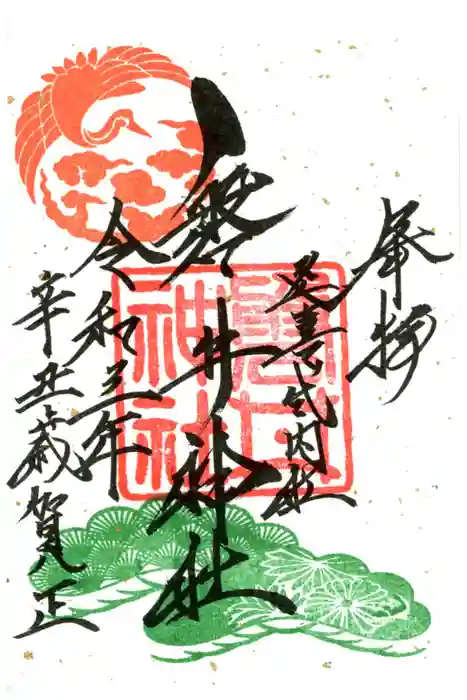 奉拝
延喜式内社
磐井神社
令和三年
辛丑歳賀正
磐井
神社